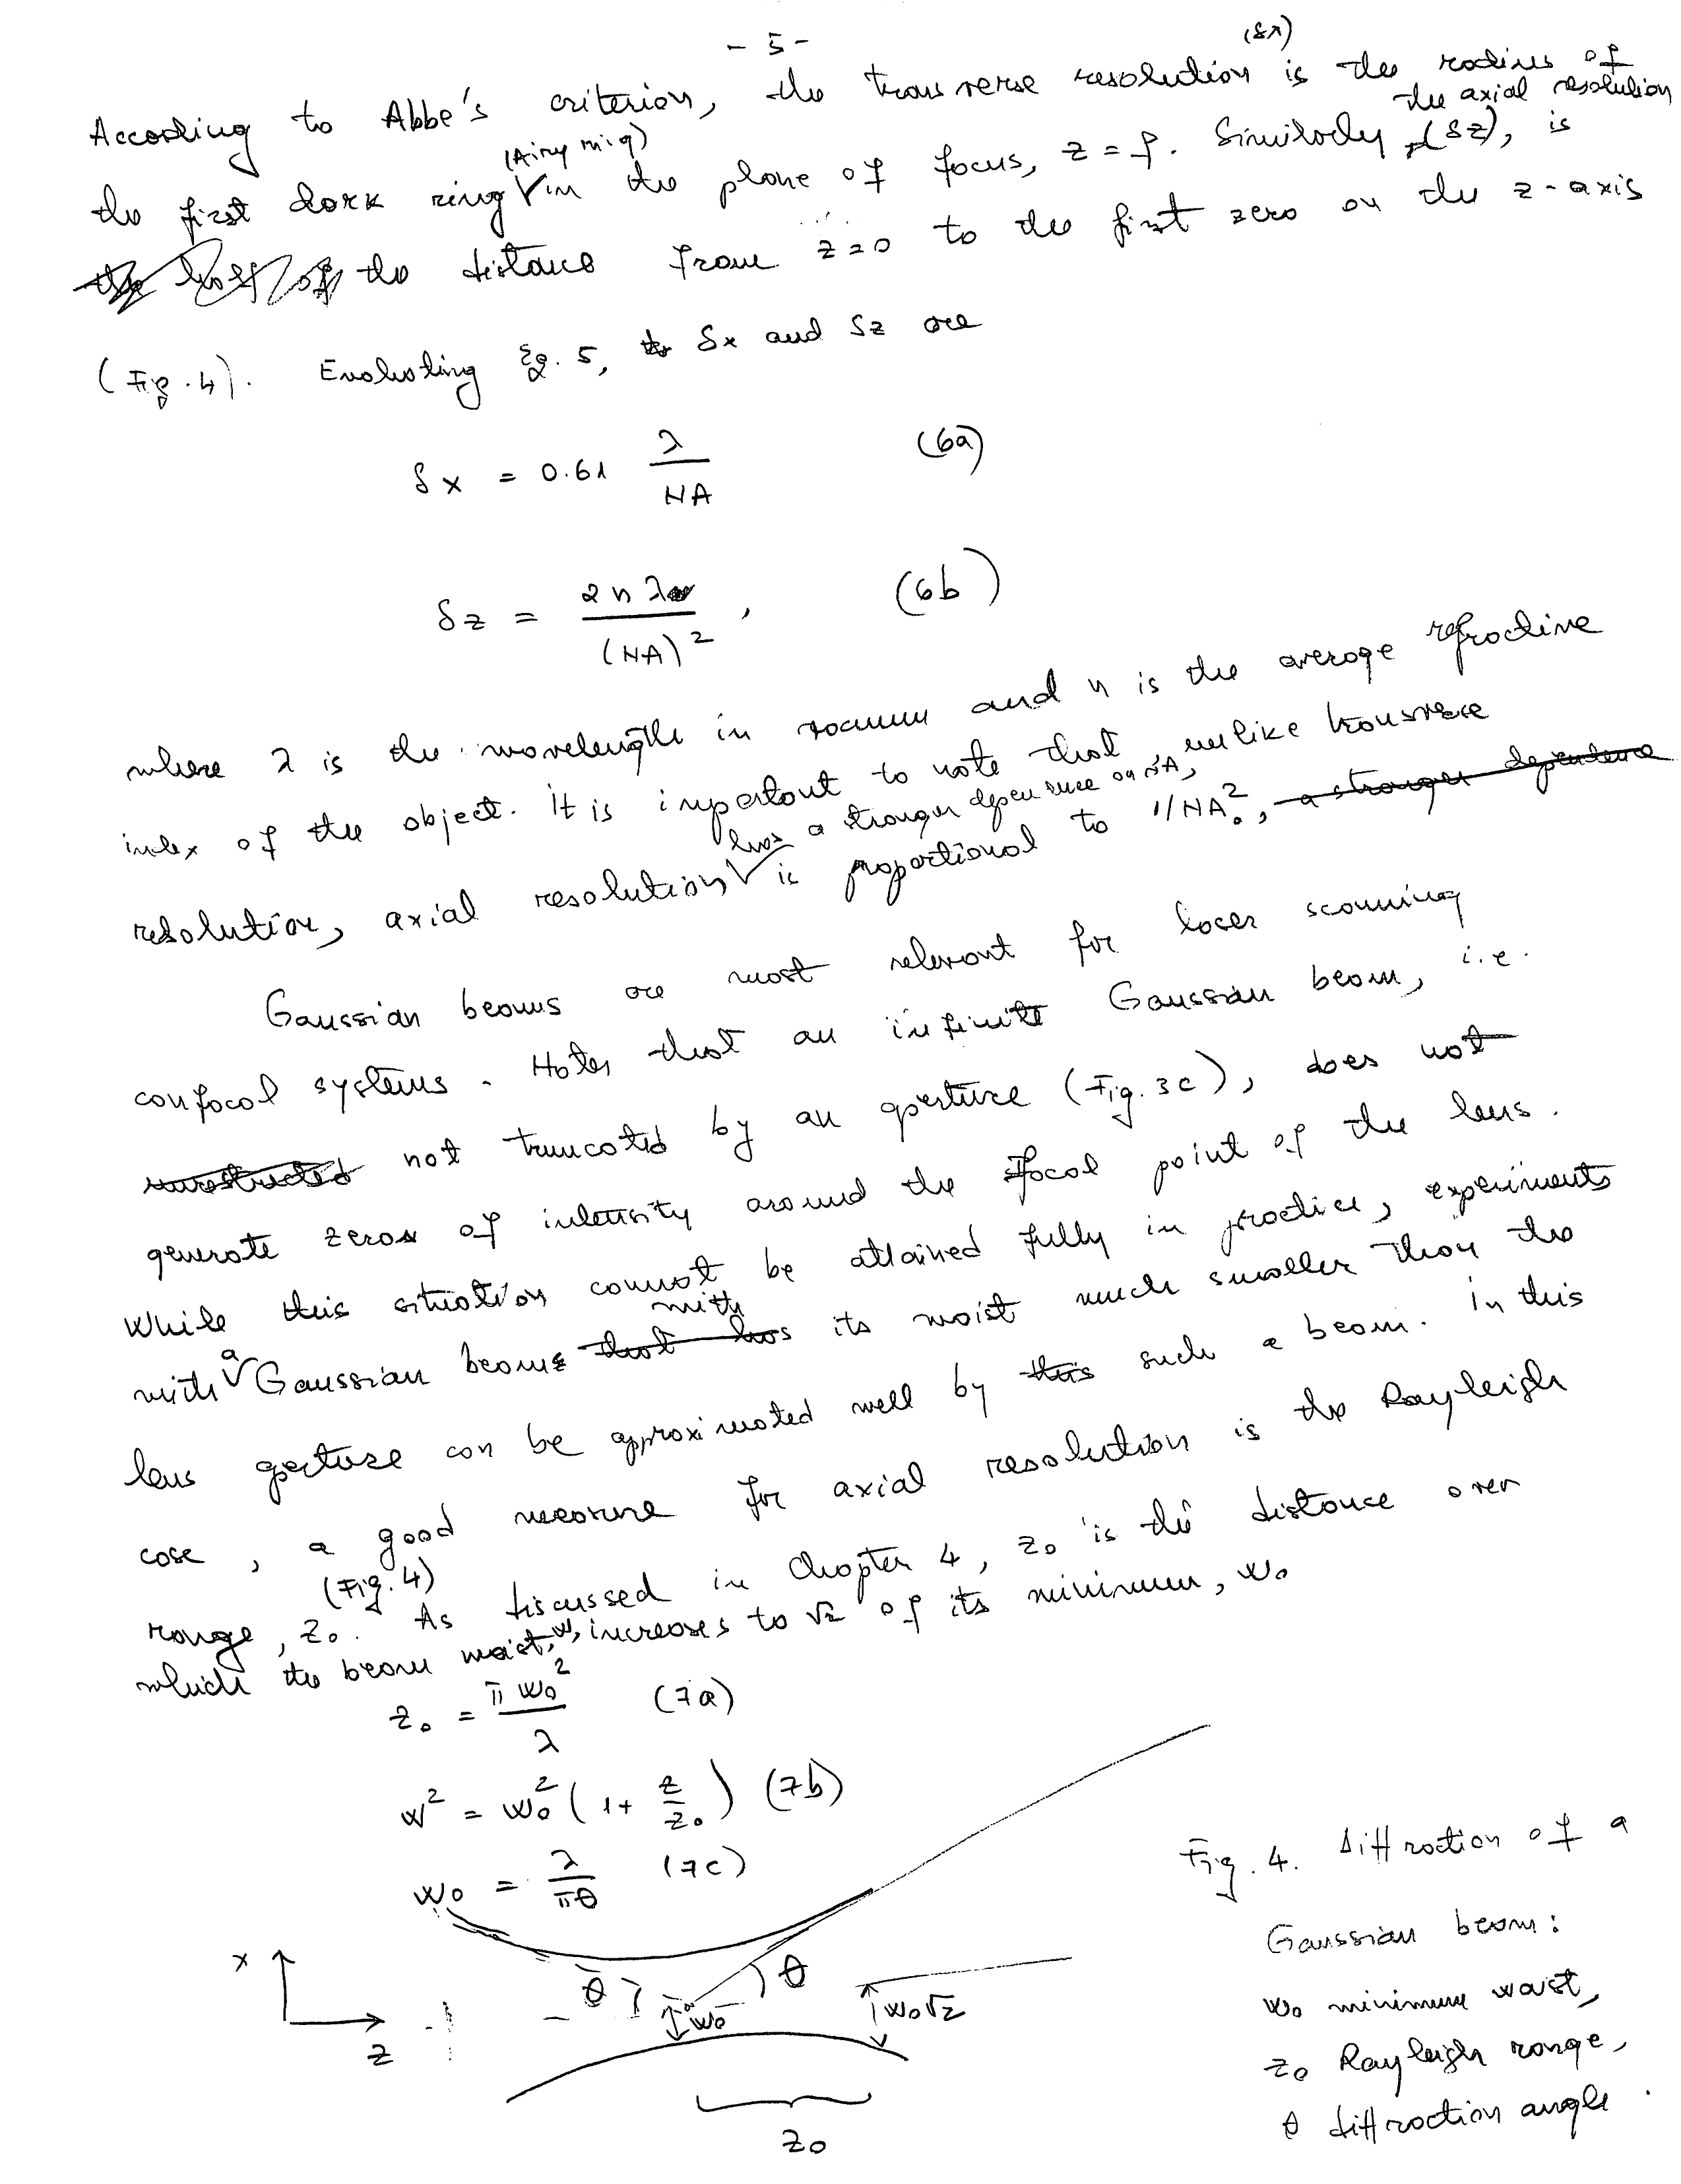 - 5 -
According to Abbe's criterion, the transverse resolution (δx) is the radius of
the first dark ring (Airy ring) in the plane of focus, z = f. Similarly, the axial resolution (δz), is
the distance from z=0 to the first zero on the z-axis
(Fig. 4). Evaluating Eq. 5, δx and δz are
δx = 0.61 λ/NA (6a)
δz = 2nλ/(NA)², (6b)
where λ is the wavelength in vacuum and n is the average refractive
index of the object. It is important to note that, unlike transverse
resolution, axial resolution has a stronger dependence on NA, is proportional to 1/NA²., a stronger dependence
Gaussian beams are most relevant for laser scanning
confocal systems. Notes that an infinite Gaussian beam, i.e.
unrestricted not truncated by an aperture (Fig. 3c), does not
generate zeros of intensity around the focal point of the lens.
While this situation cannot be attained fully in practice, experiments
with a Gaussian beams that has with its waist much smaller than the
lens aperture can be approximated well by this such a beam. In this
case, a good measure for axial resolution is the Rayleigh
range, z₀ (Fig. 4). As discussed in Chapter 4, z₀ is the distance over
which the beam waist, w, increases to √2 of its minimum, w₀
z₀ = πw₀²/λ (7a)
w² = w₀²(1 + z/z₀) (7b)
w₀ = λ/πθ (7c)
Fig. 4. Diffraction of a
Gaussian beam:
w₀ minimum waist,
z₀ Rayleigh range,
θ diffraction angle.
x
z
θ
θ
w₀
w₀√2
z₀